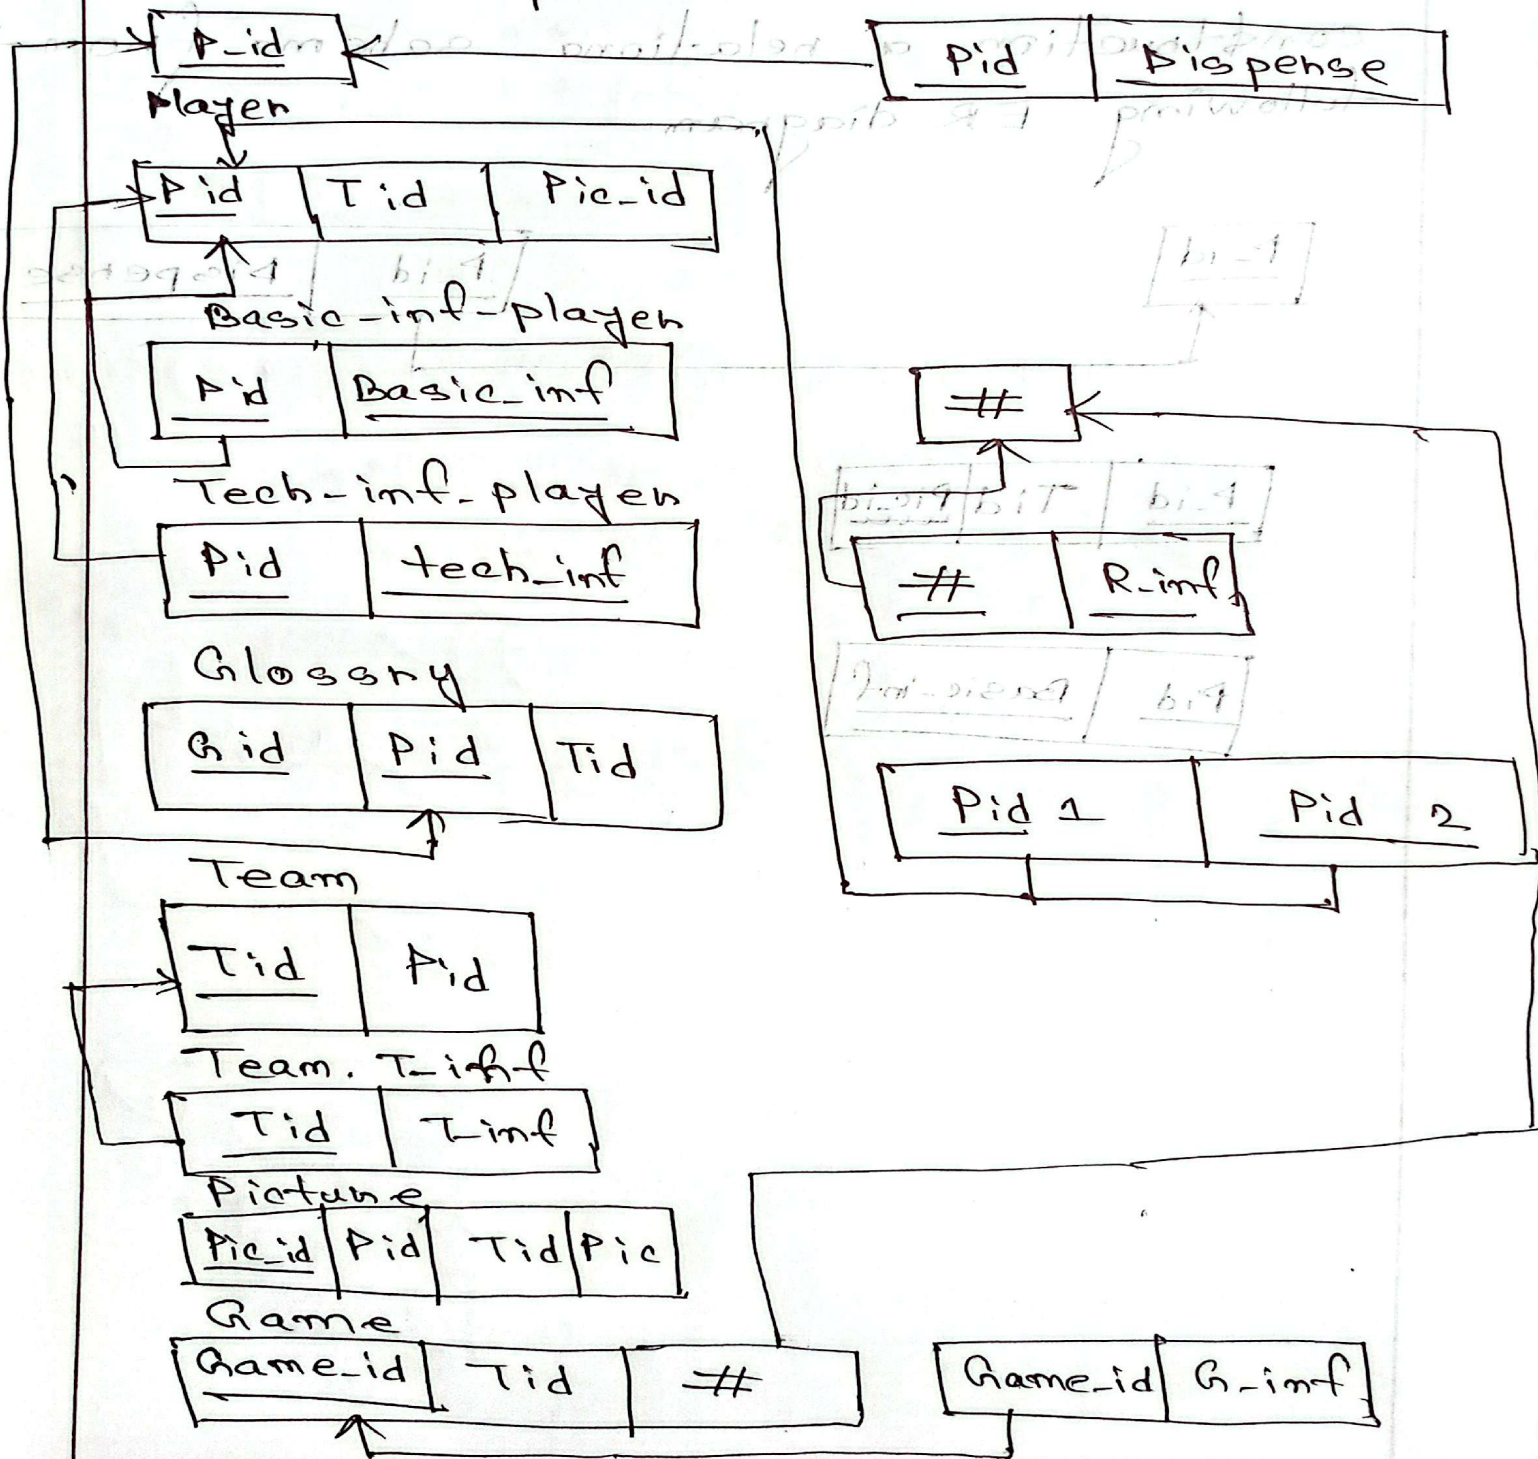 P_id
Pid Dispense
Player
Pid Tid Pic_id
Basic-inf-player
Pid Basic_inf
#
Tech-inf-player
Pid tech_inf
# R_inf
Glossry
Gid Pid Tid
Pid 1 Pid 2
Team
Tid Pid
Team. T_inf
Tid T_inf
Picture
Pic_id Pid Tid Pic
Game
Game_id Tid #
Game_id G_inf